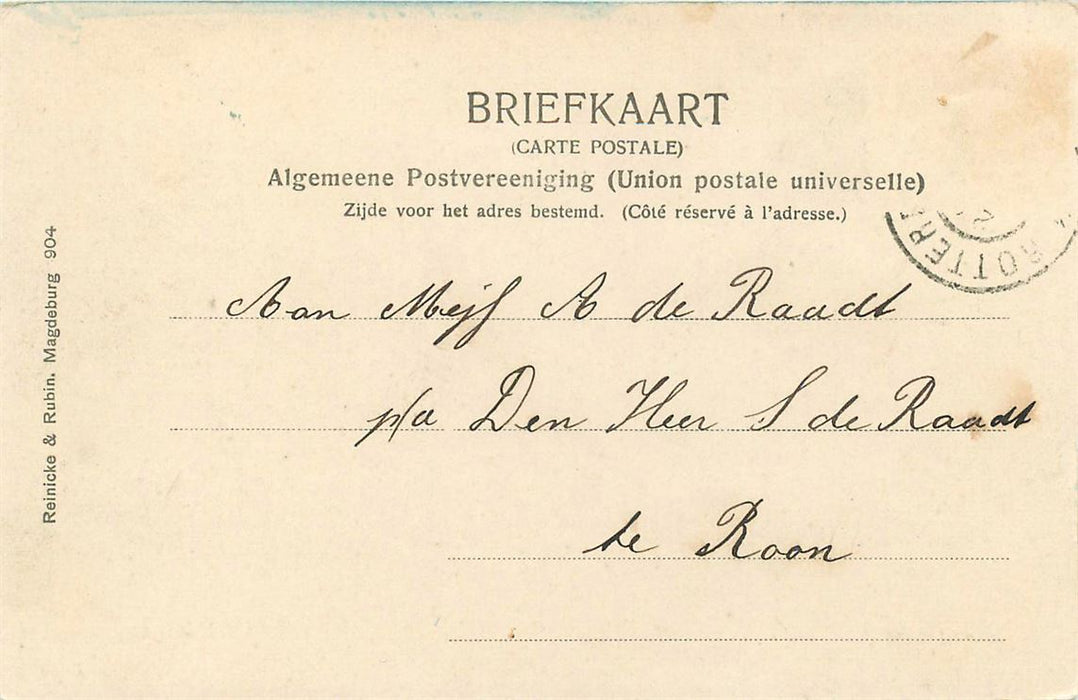 BRIEFKAART
(CARTE POSTALE)
Algemeene Postvereeniging (Union postale universelle)
Zijde voor het adres bestemd. (Côté réservé à l'adresse.)
ROTTERD
Aan Mejf A de Raadt
p/a Den Heer S de Raadt
te Roon
Reinicke & Rubin. Magdeburg 904